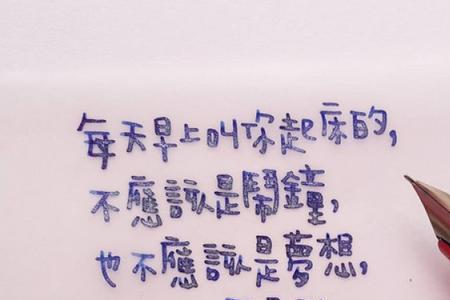 每天早上叫你起床的,
不應該是鬧鐘,
也不應該是夢想,